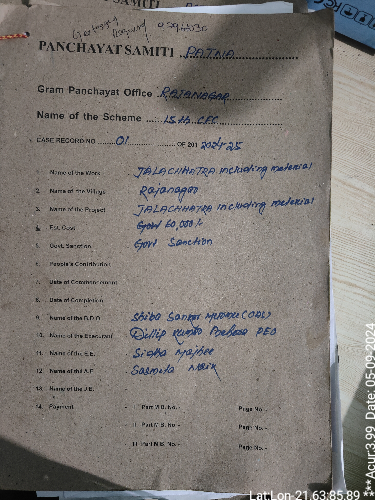 PANCHAYAT SAMITI PATNA
Gram Panchayat Office RAJANAGAR
Name of the Scheme 15th CFC
CASE RECORD NO 01 OF 201 2024-25
1. Name of the Work JALACHHATRA including material
2. Name of the Village Rajanagar
3. Name of the Project JALACHHATRA including material
4. Est. Cost Govt 60,000/-
5. Govt. Sanction Govt Sanction
6. People's Contribution
7. Date of Commencement
8. Date of Completion
9. Name of the B.D.O Shiba Sankar
10. Name of the Executant Dillip Kumar PEO
11. Name of the E.E. Majhee
12. Name of the A.E. Sasmita Naik
13. Name of the J.E.
14. Payment - I Part M.B. No.- Page No.-
- II Part M.B. No.- Page No.-
- III Part M.B. No.- Page No.-
Lat:Lon-21.63:85.89
***Acur:3.99 Date: 05-09-2024